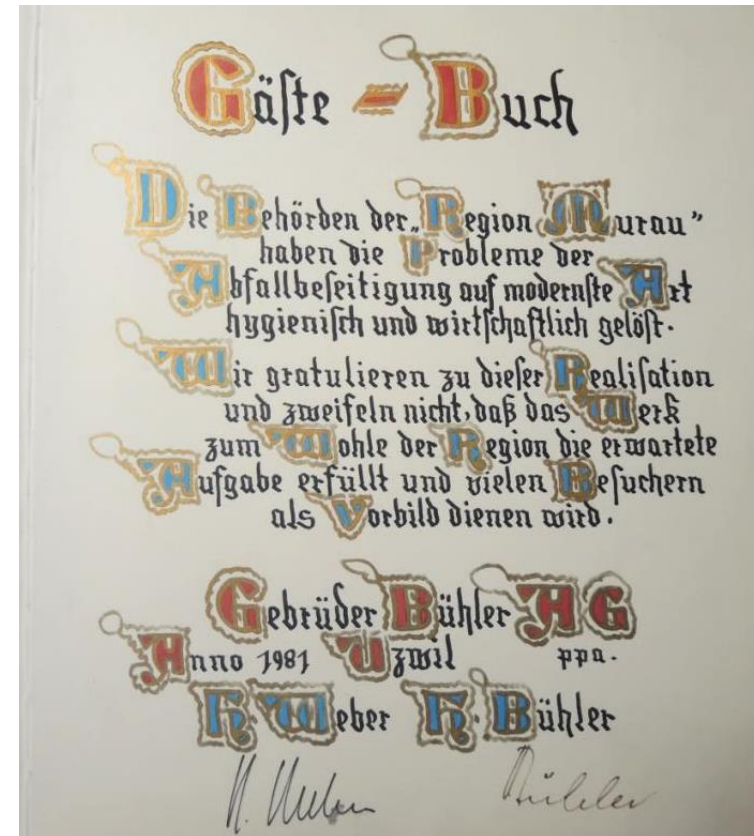 Gäste-Buch
Die Behörden der „Region Murau”
haben die Probleme der
Abfallbeseitigung auf modernste Art
hygienisch und wirtschaftlich gelöst.
Wir gratulieren zu dieser Realisation
und zweifeln nicht, daß das Werk
zum Wohle der Region die erwartete
Aufgabe erfüllt und vielen Besuchern
als Vorbild dienen wird.
Gebrüder Bühler AG
Anno 1981 Uzwil ppa.
H. Weber H. Bühler
H. Weber Bühler